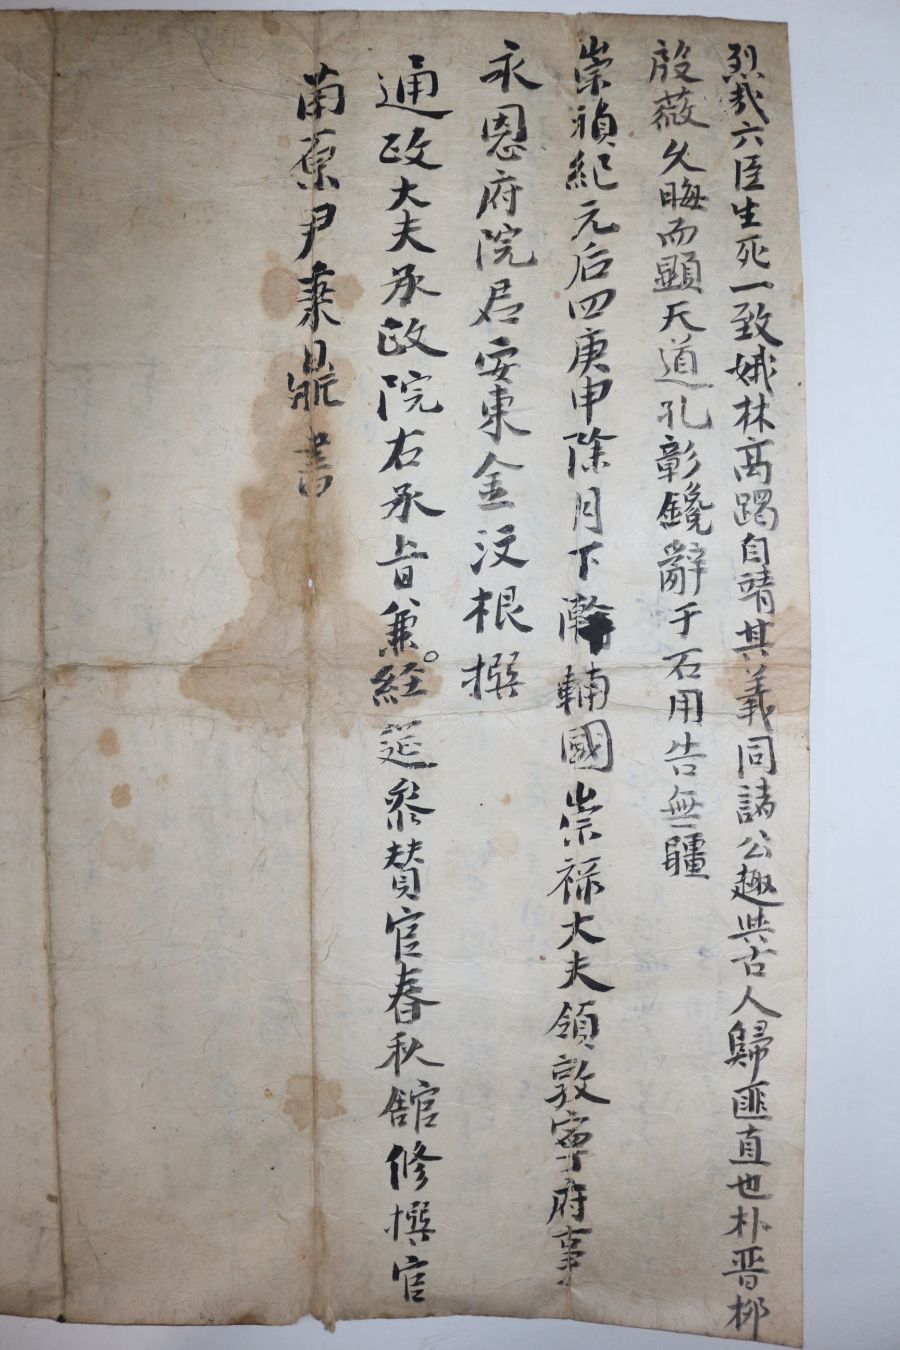 烈哉六臣生死一致娥林高躅自靖其義同諸公趣與古人歸匪直也朴晋柳
殷薇久晦而顯天道孔彰鑱辭于石用告無疆
崇禎紀元后四庚申除月下澣輔國崇祿大夫領敦寧府事
永恩府院君安東金汶根撰
通政大夫承政院右承旨兼經筵參贊官春秋館修撰官
南原尹秉鼎書